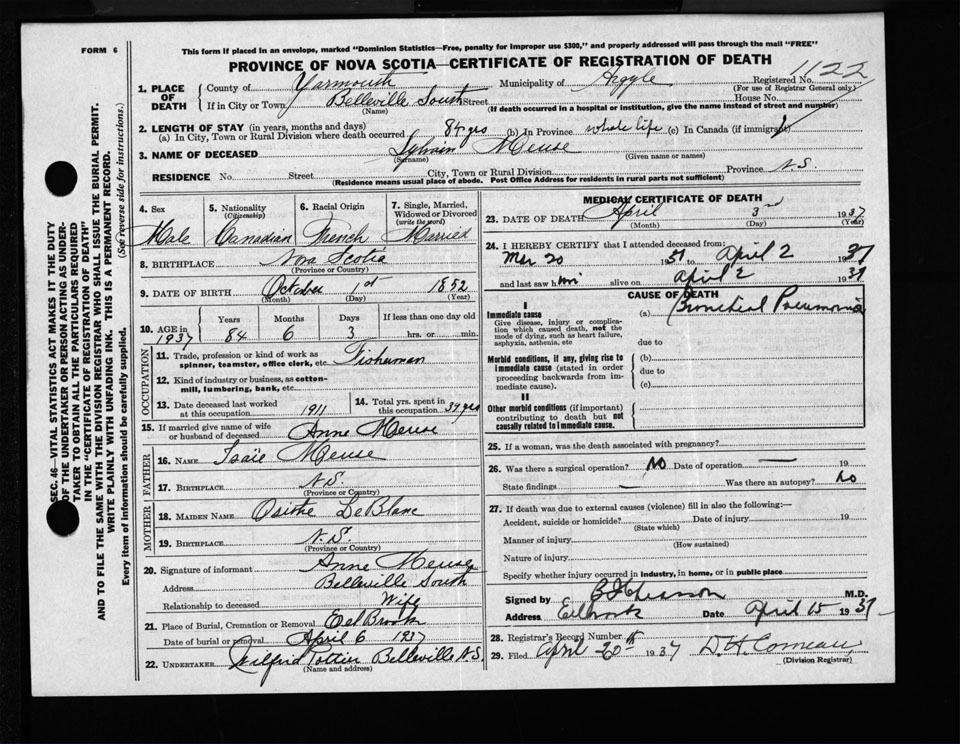 FORM 6
This form if placed in an envelope, marked "Dominion Statistics—Free, penalty for improper use $300," and properly addressed will pass through the mail "FREE"
PROVINCE OF NOVA SCOTIA—CERTIFICATE OF REGISTRATION OF DEATH
1122
1. PLACE OF DEATH
County of Yarmouth Municipality of Argyle Registered No.
(For use of Registrar General only)
If in City or Town Belleville South Street House No.
(Name) (If death occurred in a hospital or institution, give the name instead of street and number)
2. LENGTH OF STAY (in years, months and days)
(a) In City, Town or Rural Division where death occurred 84 yrs (b) In Province whole life (c) In Canada (if immigrant)
3. NAME OF DECEASED Sylvain Meuse
(Surname) (Given name or names)
RESIDENCE No. Street City, Town or Rural Division Province N.S.
(Residence means usual place of abode. Post Office Address for residents in rural parts not sufficient)
4. Sex 5. Nationality (Citizenship) 6. Racial Origin 7. Single, Married, Widowed or Divorced (write the word)
Male Canadian French Married
8. BIRTHPLACE Nova Scotia
(Province or Country)
9. DATE OF BIRTH October 1st 1852
(Month) (Day) (Year)
10. AGE in 1937
Years Months Days If less than one day old
84 6 3 hrs. or min.
OCCUPATION
11. Trade, profession or kind of work as spinner, teamster, office clerk, etc. Fisherman
12. Kind of industry or business, as cotton-mill, lumbering, bank, etc.
13. Date deceased last worked at this occupation 1911
14. Total yrs. spent in this occupation 39 yrs
15. If married give name of wife or husband of deceased Anne Meuse
FATHER
16. NAME Isaïe Meuse
17. BIRTHPLACE N.S.
(Province or Country)
MOTHER
18. MAIDEN NAME Osithe LeBlanc
19. BIRTHPLACE N.S.
(Province or Country)
20. Signature of informant Anne Meuse
Address Belleville South
Relationship to deceased Wife
21. Place of Burial, Cremation or Removal Eel Brook
Date of burial or removal April 6 1937
22. UNDERTAKER Wilfrid Pottier Belleville N.S
(Name and address)
MEDICAL CERTIFICATE OF DEATH
23. DATE OF DEATH April 3rd 1937
(Month) (Day) (Year)
24. I HEREBY CERTIFY that I attended deceased from:
Mar 20 1937 to April 2 1937
and last saw him alive on April 2 1937
CAUSE OF DEATH
I
Immediate cause (a) Bronchial Pneumonia
Give disease, injury or complication which caused death, not the mode of dying, such as heart failure, asphyxia, asthenia, etc
due to
Morbid conditions, if any, giving rise to immediate cause (stated in order proceeding backwards from immediate cause).
(b)
due to
(c)
II
Other morbid conditions (if important) contributing to death but not causally related to immediate cause.
25. If a woman, was the death associated with pregnancy?
26. Was there a surgical operation? No Date of operation — 19
State findings — Was there an autopsy? No
27. If death was due to external causes (violence) fill in also the following:—
Accident, suicide or homicide? Date of injury 19
(State which)
Manner of injury
(How sustained)
Nature of injury
Specify whether injury occurred in industry, in home, or in public place
Signed by M.D.
Address Eelbrook Date April 15 1937
28. Registrar's Record Number
29. Filed April 20th 1937 D. H. Comeau
(Division Registrar)
SEC. 46—VITAL STATISTICS ACT MAKES IT THE DUTY
OF THE UNDERTAKER OR PERSON ACTING AS UNDER-
TAKER TO OBTAIN ALL THE PARTICULARS REQUIRED
IN THE "CERTIFICATE OF REGISTRATION OF DEATH"
AND TO FILE THE SAME WITH THE DIVISION REGISTRAR WHO SHALL ISSUE THE BURIAL PERMIT.
WRITE PLAINLY WITH UNFADING INK. THIS IS A PERMANENT RECORD.
Every item of information should be carefully supplied. (See reverse side for instructions.)